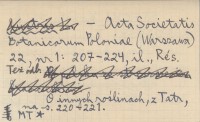 – Acta Societatis
Botanicorum Poloniae (Warszawa)
22, nr 1: 207–224, il., Rés.
Też odb.
O innych roślinach, z Tatr,
na s. 220–221.
MT *